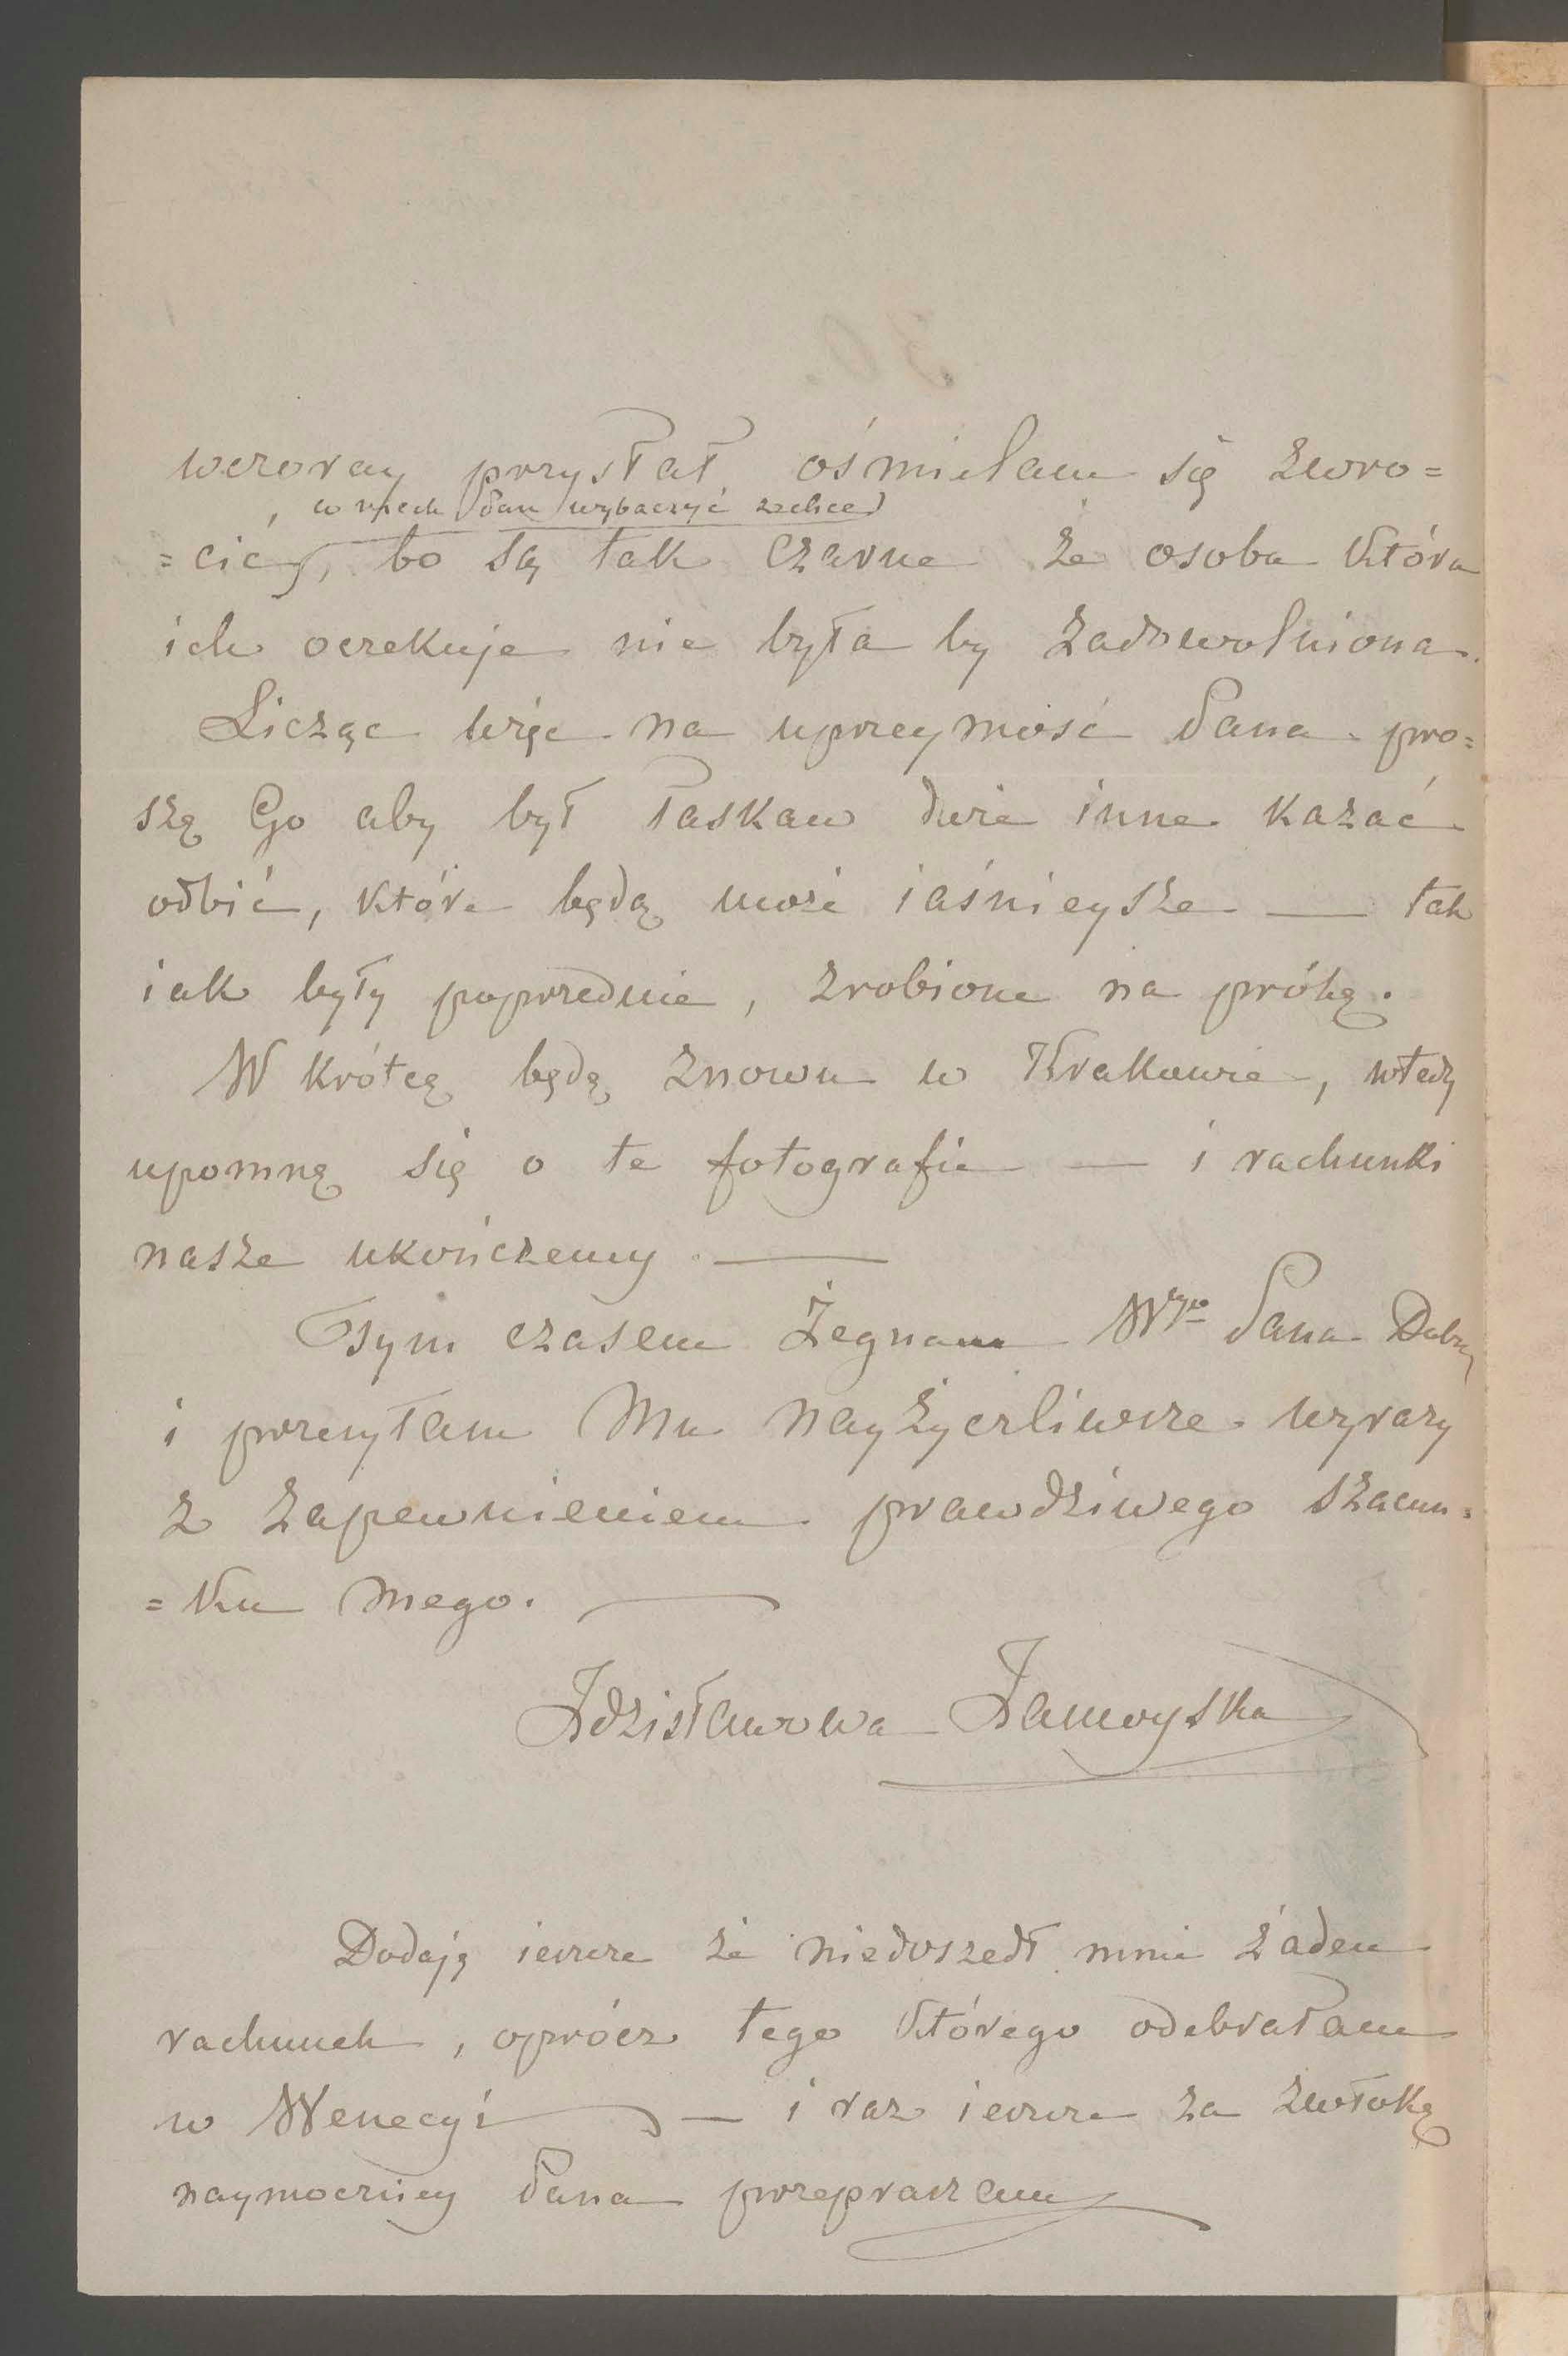 wczoray przysłał ośmielam się zwro=
, co niech Pan wybaczyć zechce
=cić, bo są tak czarne że osoba która
ich oczekuje nie była by zadowolniona.
Licząc więc na uprzeymość Pana pro=
szę Go aby był łaskaw dwie inne kazać
odbić, które będą może iaśnieysze — tak
iak były poprzednie, zrobione na próbę.
W krótcę będę znowu w Krakowie, wtedy
upomnę się o te fotografie — i rachunki
nasze ukończemy. —
Tym czasem żegnam Wgo Pana Dobrz
i przesyłam Mu nayżyczliwsze wyrazy
z zapewnieniem prawdziwego szacun=
=ku mego. —
Zdzisławowa Zamoyska
Dodaję ieszcze że niedoszedł mnie żaden
rachunek, oprócz tego którego odebrałam
w Wenecyi — i raz ieszcze za zwłokę
naymocniey Pana przepraszam